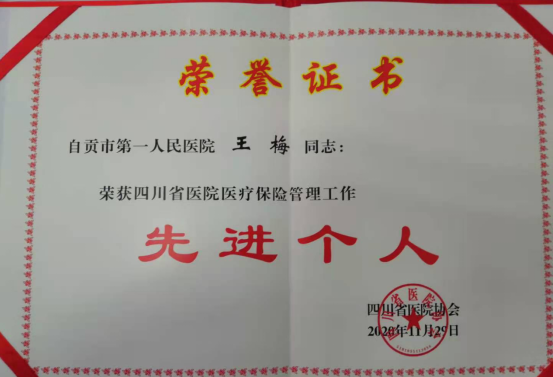 荣誉证书
自贡市第一人民医院 王梅 同志：
荣获四川省医院医疗保险管理工作
先进个人
四川省医院协会
2020年11月29日